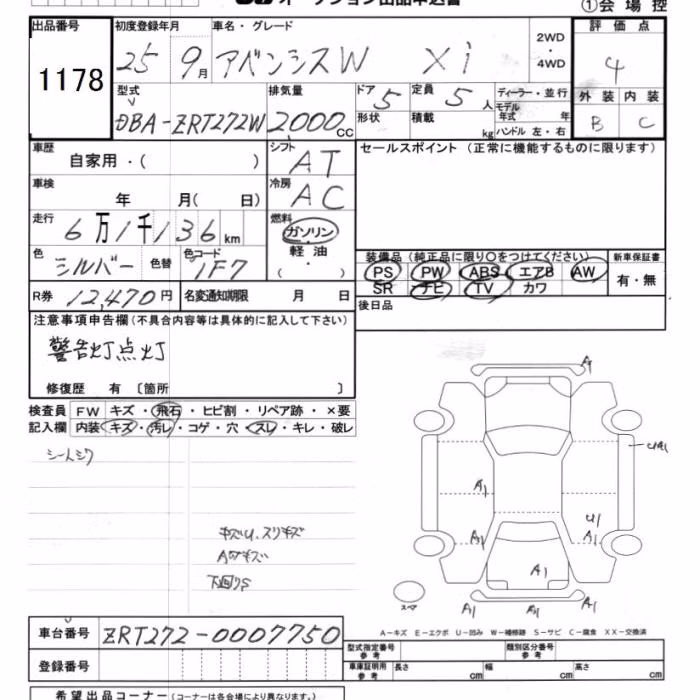 オークション出品申込書
①会場控
出品番号 初度登録年月 車名・グレード 2WD・4WD 評価点
1178 25 9月 アベンシスW Xi 4
型式 排気量 ドア 5 定員 5人 ディーラー・並行 外装 内装
DBA-ZRT272W 2000cc 形状 積載 kg モデル年式 年 ハンドル 左・右 B C
車歴 自家用・( ) シフト AT セールスポイント (正常に機能するものに限ります)
車検 年 月( 日) 冷房 AC
走行 6万1千136km 燃料 ガソリン・軽油・( )
色 シルバー 色替 色コード 1F7 装備品 (純正品に限り〇をつけてください) 新車保証書
PS PW ABS エアB AW 有・無
R券 12,470円 名変通知期限 月 日 SR ナビ TV カワ
後日品
注意事項申告欄(不具合内容等は具体的に記入して下さい)
警告灯点灯
修復歴 有 〔箇所 〕
検査員 FW キズ・飛石・ヒビ割・リペア跡・×要
記入欄 内装 キズ・汚レ・コゲ・穴・スレ・キレ・破レ
シートシワ
キズU、スリキズ
Aワキズ
下回りS
A1
UA1
A1
U1
A1
A1
A1
A1
B1
A1
スペア
A-キズ E-エクボ U-凹み W-補修跡 S-サビ C-腐食 XX-交換済
車台番号 ZRT272-0007750 型式指定番号 参考 類別区分番号 参考
登録番号 車庫証明用 参考 長さ cm 幅 cm 高さ cm
希望出品コーナー (コーナーは各会場により異なります。)